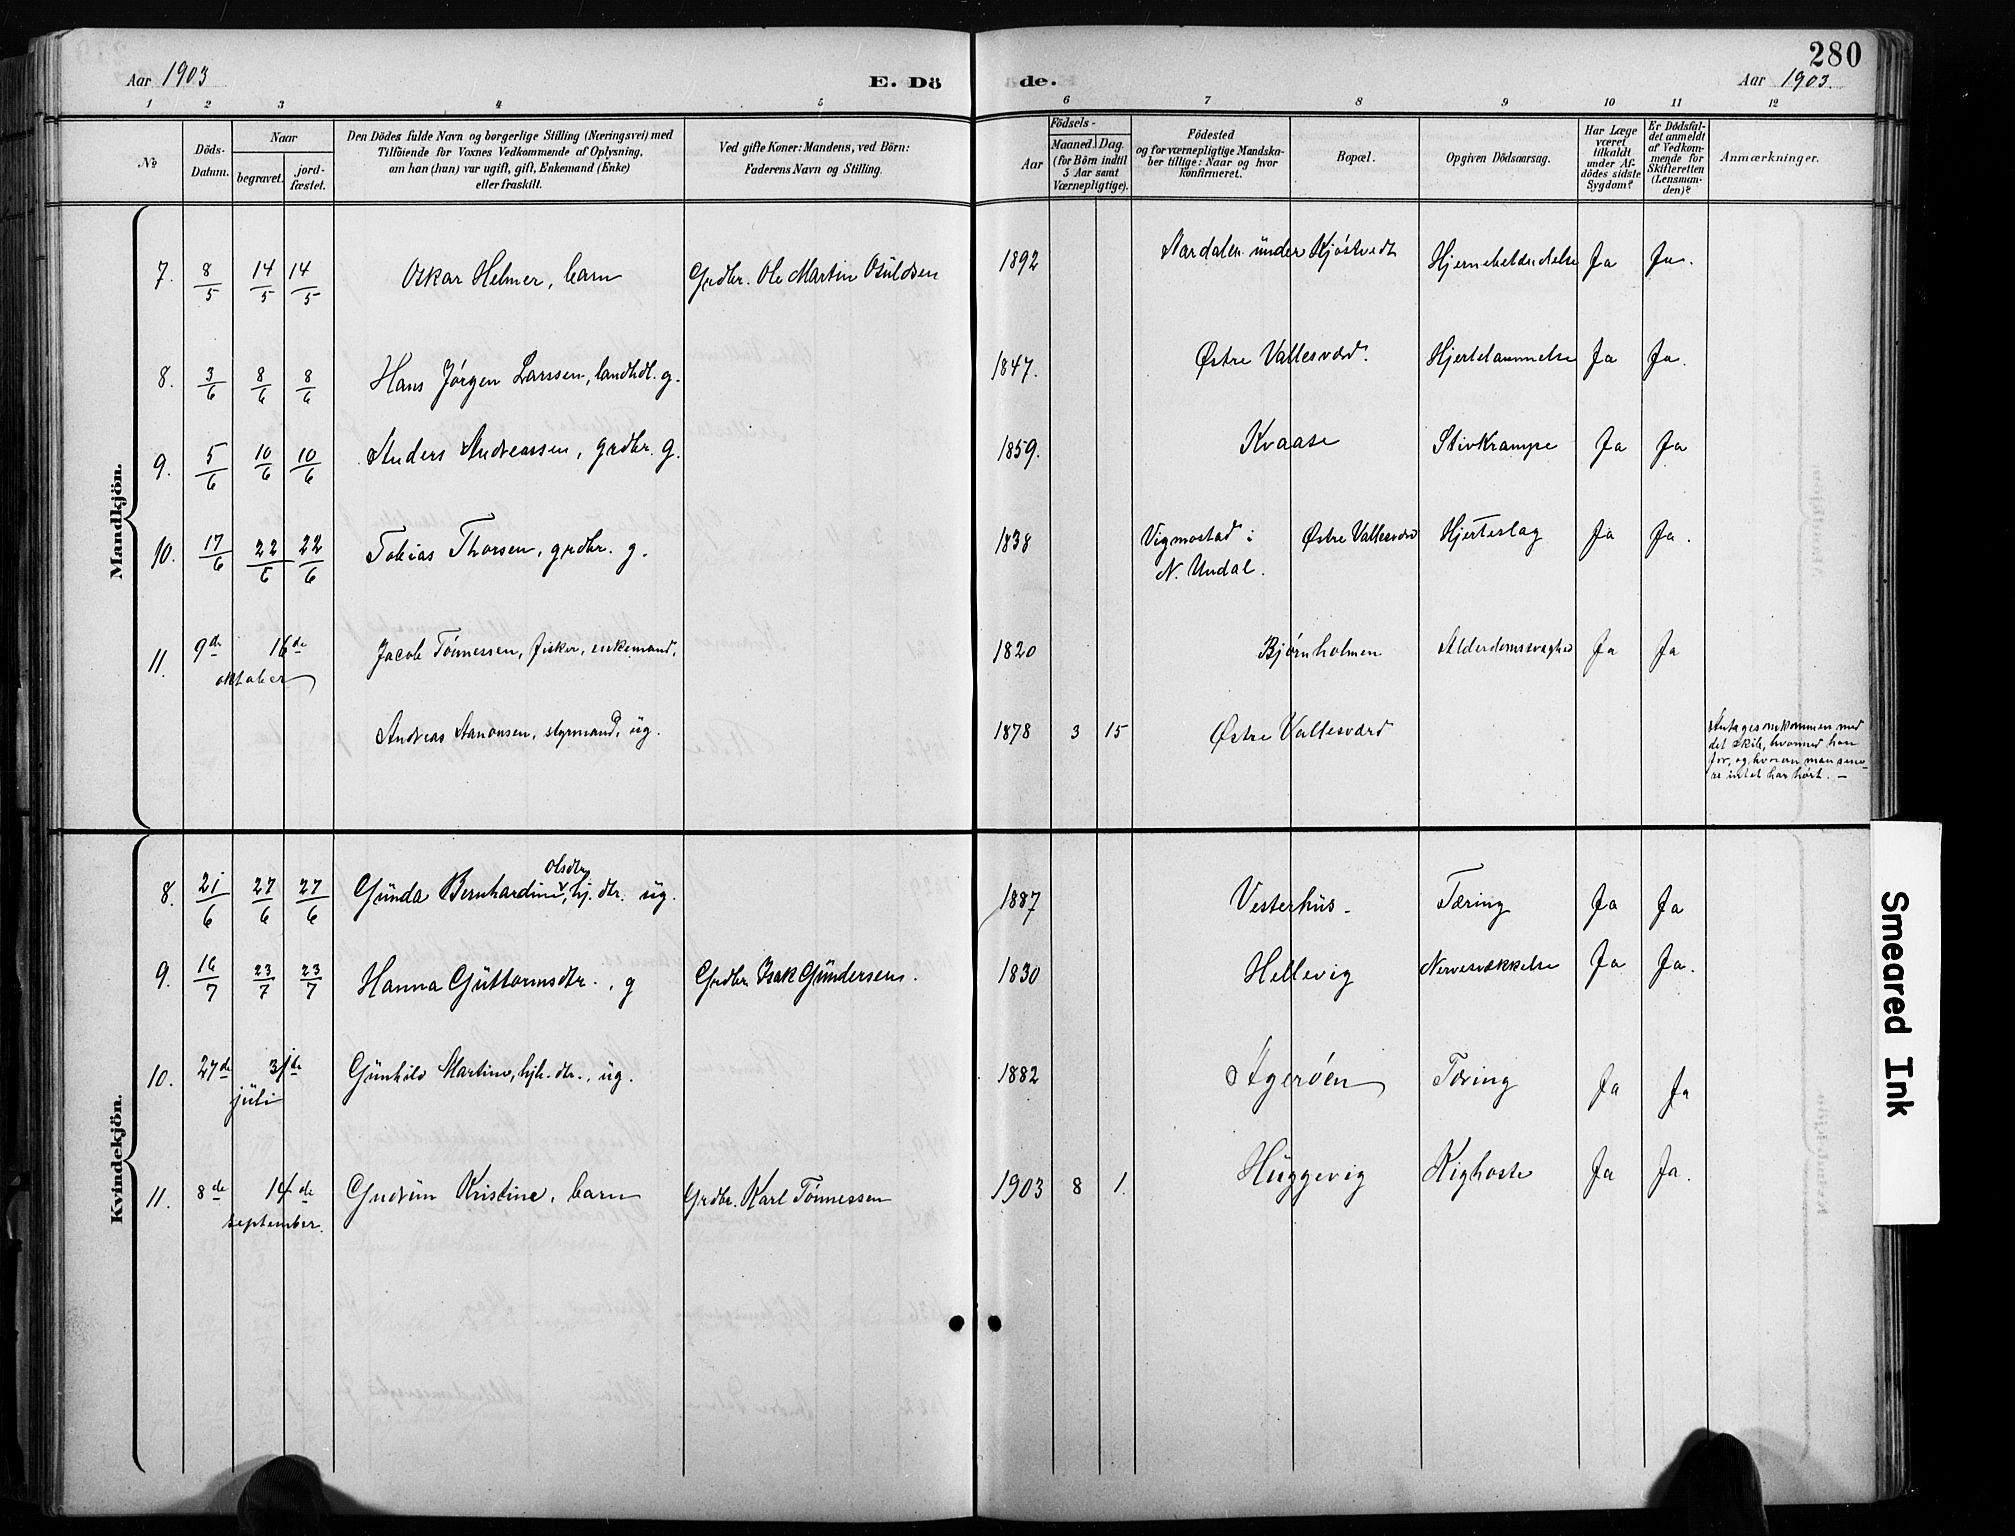 280
Aar 1903
E. Dö
de.
Aar 1903.
1 2 3 4 5 6 7 8 9 10 11 12
No
Döds-
Datum.
Naar
begravet.
jord-
fæstet.
Den Dödes fulde Navn og borgerlige Stilling (Næringsvei) med
Tilföiende for Voxnes Vedkommende af Oplysning,
om han (hun) var ugift, gift, Enkemand (Enke)
eller fraskilt.
Ved gifte Koner: Mandens, ved Börn:
Faderens Navn og Stilling.
Födsels-
Aar
Maaned.
Dag.
(for Börn indtil
5 Aar samt
Værnepligtige).
Födested
og for værnepligtige Mandska-
ber tillige: Naar og hvor
konfirmeret.
Bopæl.
Opgiven Dödsaarsag.
Har Læge
været
tilkaldt
under Af-
dödes sidste
Sygdom?
Er Dödsfal-
det anmeldt
af Vedkom-
mende for
Skifteretten
(Lensman-
den)?
Anmærkninger.
Mandkjön.
7. 8/5 14/5 14/5 Oskar Helmer, barn Grdbr. Ole Martin Osüldsen 1892 Aardalen ünder Kjöstvedt Hjernebetændelse Ja Ja.
8. 3/6 8/6 8/6 Hans Jørgen Larssen, landhdl. g. 1847. Østre Vallesværd. Hjertelammelse Ja Ja.
9. 5/6 10/6 10/6 Anders Andreassen, grdbr. g. 1859. Kvaase Stivkrampe Ja Ja
10. 17/6 22/6 22/6 Tobias Thorsen, grdbr. g. 1838 Vigmostad i Østre Vallesværd Hjerteslag Ja Ja.
N. Undal.
11. 9de 16de Jacob Tönnessen, fisker, enkemand. 1820 Bjørnholmen Alderdomssvaghed Ja Ja
oktober
Andreas Aanonsen, styrmand, üg. 1878 3 15 Østre Vallesværd
Antages omkommen med
det skib, hvormed han
for, og hvorom man sene-
re intet har hørt. —
Kvindekjön.
Olsdtr
8. 21/6 27/6 27/6 Günda Bernhardine, hj. dtr. üg. 1887 Vesterhüs. Tæring Ja Ja
9. 16/7 23/7 23/7 Hanna Güttormsdtr., g Grdbr. Isak Gündersens. 1830 Hellevig Nervesvækkelse Ja Ja.
10. 27de 31te Günhild Martine, hjh. dtr., üg. 1882 Agerøen Tæring Ja Ja
jüli
11. 8de 14de Gudrün Kristine, barn Grdbr. Karl Tönnessen 1903 8 1. Hüggevig Kighoste Ja Ja.
september.
Smeared Ink